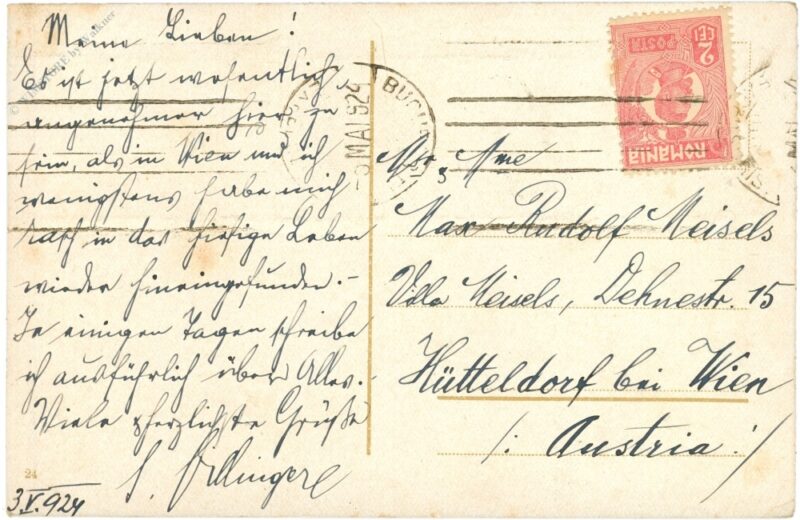 Meine Lieben!
Es ist jetzt wesentlich
angenehmer hier zu
sein, als in Wien und ich
wenigstens habe mich
rasch in das hiesige Leben
wieder hineingefunden.-
In einigen Tagen schreibe
ich ausführlich über Alles.-
Viele herzlichste Grüße
24
3.V.924
2 LEI
POSTA
ROMANIA
MAI 924
Mr & Mme
Max Rudolf Meisels
Villa Meisels, Dehnestr. 15
Hütteldorf bei Wien
/: Austria :/